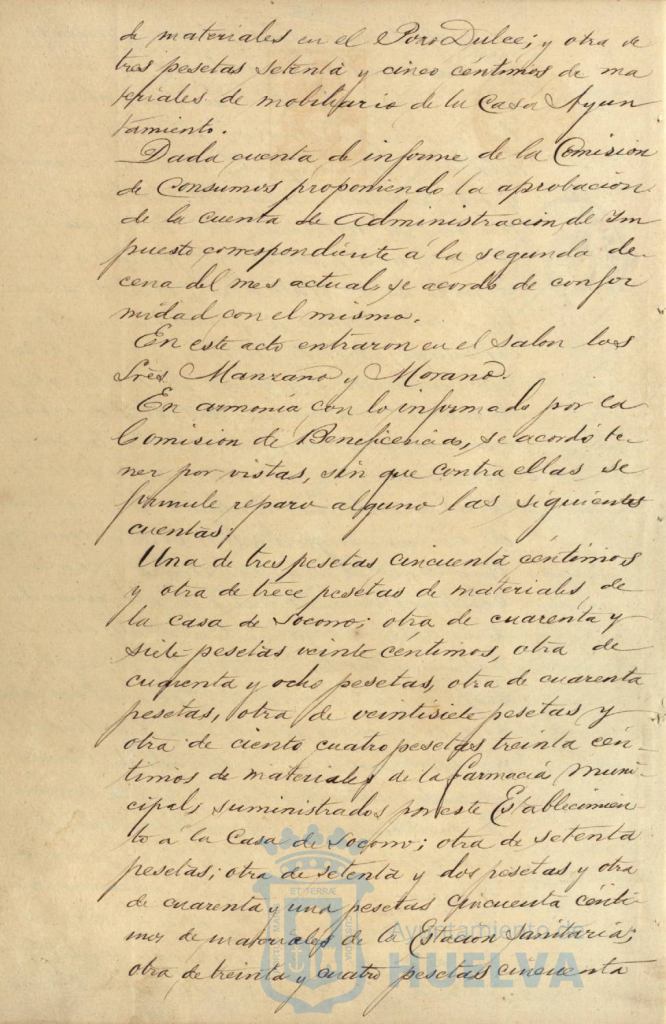 de materiales en el Pozo Dulce; y otra de
tres pesetas setenta y cinco céntimos de ma
teriales de mobiliario de la Casa Ayun
tamiento.
Dada cuenta de informe de la Comision
de Consumos proponiendo la aprobacion
de la cuenta de Administracion de Im
puesto correspondiente á la segunda de-
cena del mes actual, se acordó de confor
midad con el mismo.
En este acto entraron en el salon los
Sres. Manzano y Morano.
En armonía con lo informado por la
Comision de Beneficencia, se acordó te-
ner por vistas, sin que contra ellas se
formule reparo alguno las siguientes
cuentas:
Una de tres pesetas cincuenta céntimos
y otra de trece pesetas de materiales de
la casa de Socorro; otra de cuarenta y
siete pesetas veinte céntimos, otra de
cuarenta y ocho pesetas, otra de cuarenta
pesetas, otra de veintisiete pesetas y
otra de ciento cuatro pesetas treinta cén-
timos de materiales de la farmacia muni-
cipal, suministrados por este Establecimien-
to á la Casa de Socorro; otra de setenta
pesetas; otra de setenta y dos pesetas y otra
de cuarenta y una pesetas cincuenta cénti
mos de materiales de la Estacion Sanitaria;
otra de treinta y cuatro pesetas cincuenta
Ayuntamiento de
HUELVA